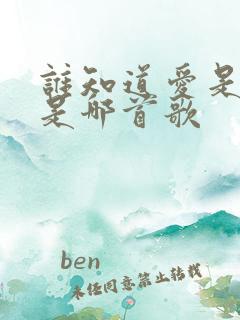 誰知道愛是
是那首歌
ben
未经同意禁止转载